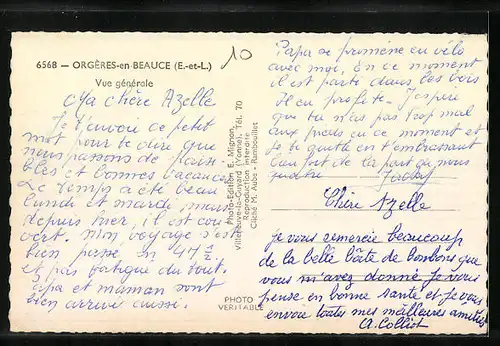 6568 — ORGÈRES-en-BEAUCE (E.-et-L.)
Vue générale
10
Ma chère Azelle
Je t'envoie ce petit
mot pour te dire que
nous passons de paisi-
bles et bonnes vacances
Le temps a été beau
lundi et mardi, mais
depuis hier, il est cou-
vert. Mon voyage s'est
bien passé en 4h ½
et pas fatigué du tout.
Papa et maman sont
bien arrivé aussi.
Photo-Edition E. Mignon
Villeneuve-la-Guyard (Yonne). Tél. 70
Reproduction interdite
Cliché M. Aube - Rambouillet
PHOTO
VERITABLE
Papa se promène en vélo
avec moi. En ce moment
il est parti dans les bois
Il en profite. J'espère
que tu n'as pas trop mal
aux pieds en ce moment et
Je te quitte en t'embrassant
bien fort de la part de nous
quatre
Chère Azelle
Je vous remercie beaucoup
de la belle boîte de bonbons que
vous m'avez donné. Je vous
pense en bonne santé et je vous
envoie toutes mes meilleures amitiés
A. Colliot